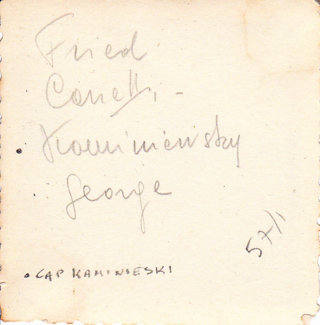 Fried
Canetti -
Kaminiewsky
George
57/1
CAP KAMINIESKI